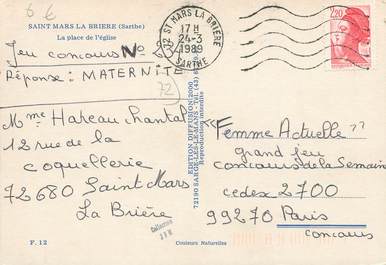 6 €
SAINT MARS LA BRIERE (Sarthe)
La place de l'église
Jeu concours No
Réponse : MATERNITE
72
72 ST MARS LA BRIÈRE
17 H
24-3
1989
SARTHE
2,20
Mme Hareau Chantal
12 rue de la
coquellerie
72680 Saint Mars
La Brière
EDITION DIFFUSION 2000
Reproduction interdite
"Femme Actuelle"
grand jeu
concours de la Semaine
cedex 2700
99270 Paris
concours
F. 12
Couleurs Naturelles